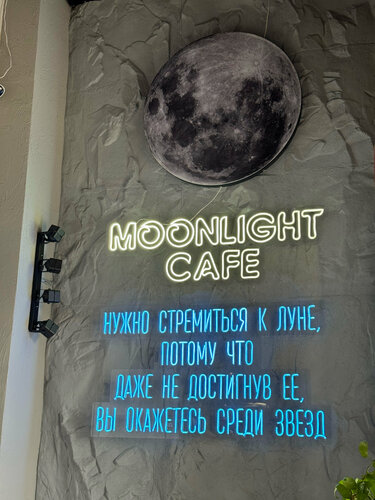 MOONLIGHT
CAFE
НУЖНО СТРЕМИТЬСЯ К ЛУНЕ,
ПОТОМУ ЧТО
ДАЖЕ НЕ ДОСТИГНУВ ЕЕ,
ВЫ ОКАЖЕТЕСЬ СРЕДИ ЗВЕЗД